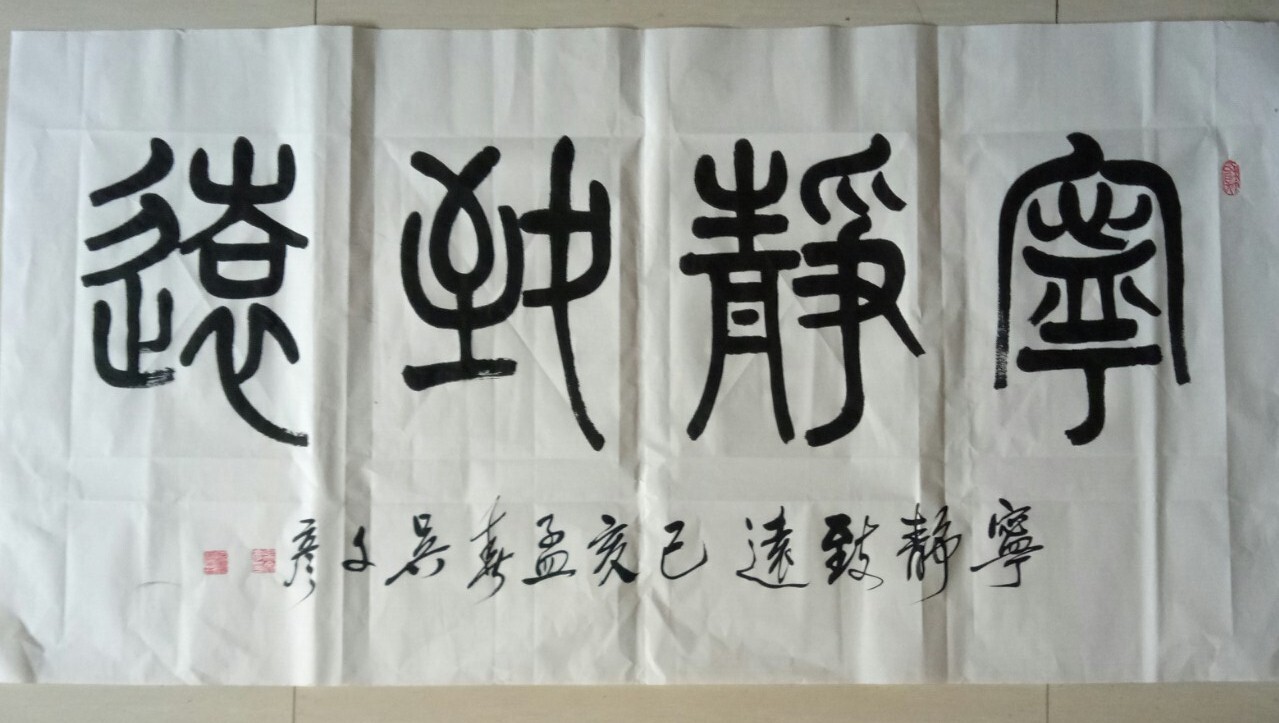 寧靜致遠
寧靜致遠 己亥孟春吴文彦